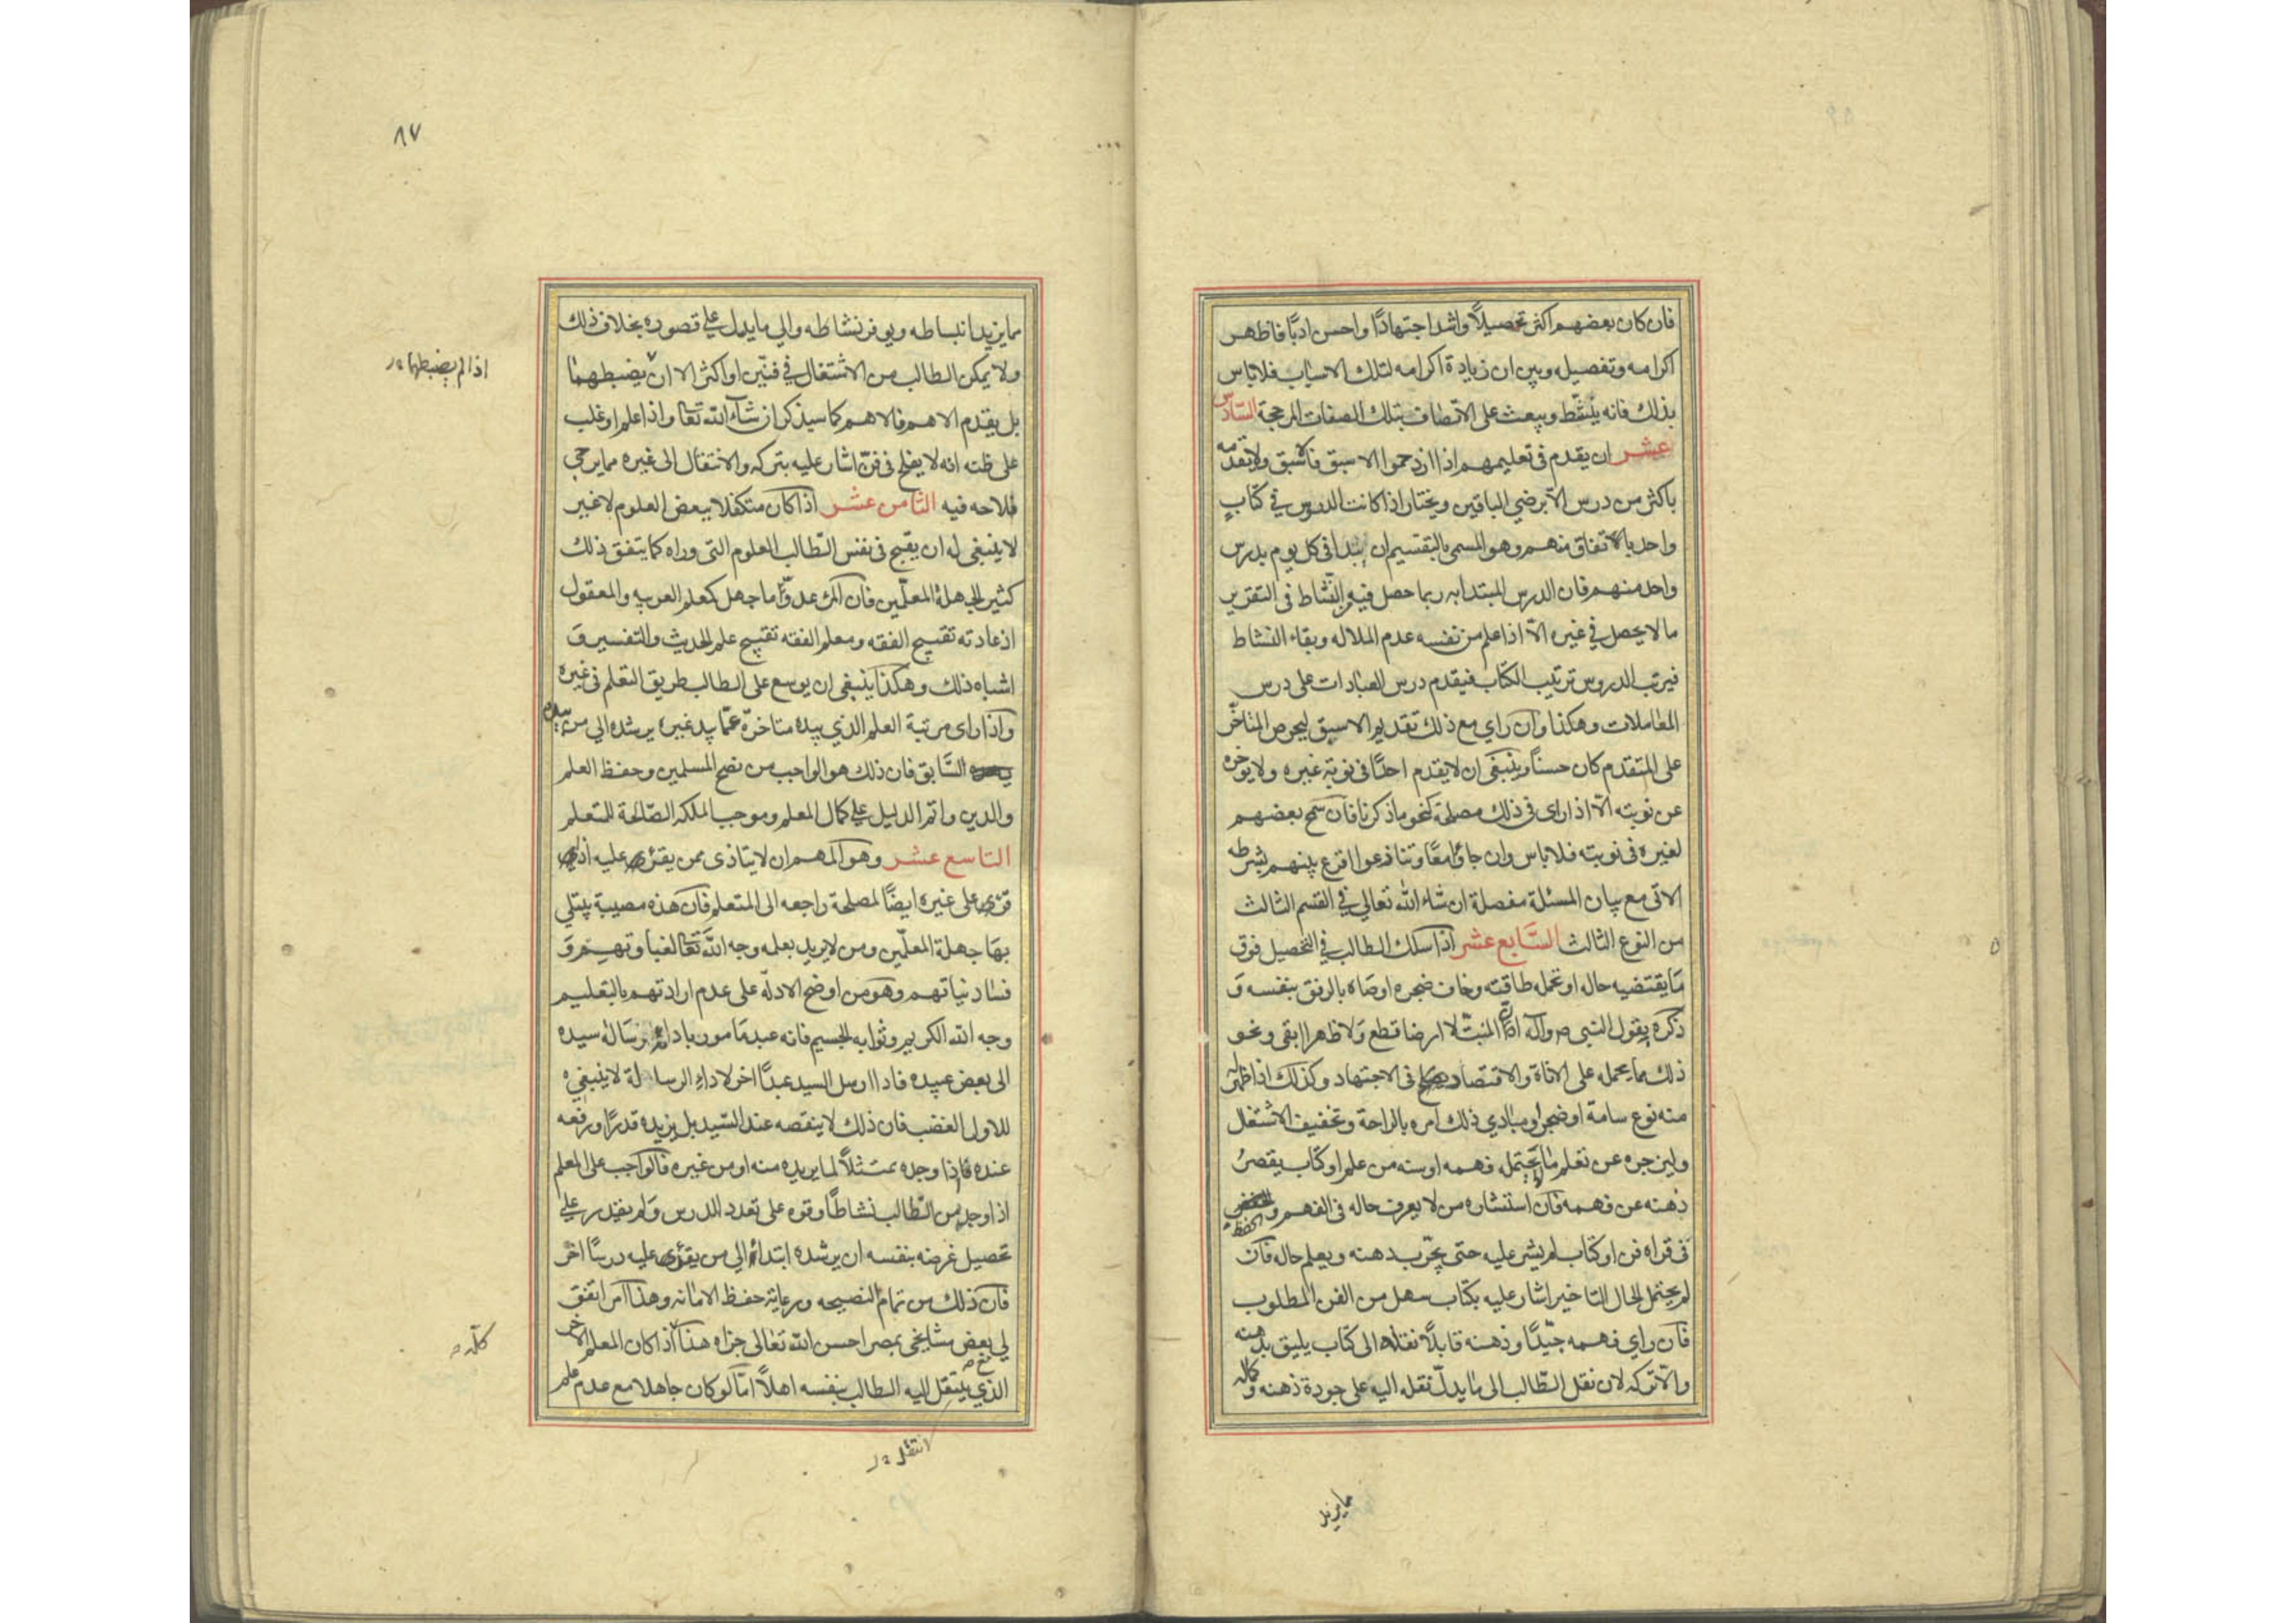 فان كان بعضهم اكثر تحصيلاً واشد اجتهادًا واحسن ادبًا فاظهر
اكرامه وتفصيله وبين ان زيادة اكرامه لتلك الاسباب فلاباس
بذلك فانه ينشّط ويبعث على الاتصاف بتلك الصفات المرجحة السّادس
عشر ان يقدم في تعليمهم اذا ازدحموا الاسبق فالاسبق ولا يقدمه
باكثر من درس الا برضي الباقين ويختار اذا كانت الدروس في كتابٍ
واحد بالاتفاق منهم وهو المسمى بالتقسيم ان يبتدا في كل يوم بدرس
واحد منهم فان الدرس المبتدا به ربما حصل فيه من النشاط في التقرير
ما لا يحصل في غيره الّا اذا علم من نفسه عدم الملاله وبقاء النشاط
فيرتب الدروس ترتيب الكتاب فيقدم درس العبادات على درس
المعاملات وهكذا وان راي مع ذلك تقديم الاسبق ليحرص المتاخّر
على المتقدم كان حسنًا وينبغى ان لا يقدم احدًا في نوبة غيره ولا يوخره
عن نوبته الّا اذا راى في ذلك مصلحة كنحو ما ذكرنا فان سمح بعضهم
لغيره في نوبته فلا باس وان جاؤا معًا وتنازعوا اقرع بينهم بشرطه
الاتى مع بيان المسئلة مفصلة ان شاء الله تعالي في القسم الثالث
من النوع الثالث السّابع عشر اذا سلك الطالب في التحصيل فوق
ما يقتضيه حاله او تحمله طاقته وخاف ضجره اوصاه بالرفق بنفسه و
ذكره بقول النبي ص وآله ان المنبتّ لا ارضا قطع ولا ظهرا ابقى ونحو
ذلك مما يحمله على الاناة والاقتصاد في الاجتهاد وكذلك اذا ظهر له
منه نوع سامة او ضجر او مبادي ذلك امره بالراحة وتخفيف الاشتغال
وليزجره عن تعلم ما لا يحتمله فهمه او سنه من علم او كتاب يقصرُ
ذهنه عن فهمه فان استشاره من لا يعرف حاله في الفهم والحفظ
في قراه فن او كتاب لم يشر عليه حتى يجرّب ذهنه ويعلم حاله فان
لم يحتمل الحال التاخير اشار عليه بكتاب سهل من الفن المطلوب
فان راي فهمه جيّدًا وذهنه قابلاً نقله الى كتاب يليق بذهنه
والّا تركه لان نقل الطّالب الى ما يدلّ نقله اليه على جودة ذهنه وكماله
مما يزيد
٨٧
مما يزيد انبساطه ويوفر نشاطه والي ما يدل علي قصوره بخلاف ذلك
ولا يمكن الطالب من الاشتغال في فنّين او اكثر الا ان يضبطهما
اذا لم يضبطهما
بل يقدم الاهم فالاهم كما سيذكر ان شاء الله تعا واذا علم او غلب
على ظنه انه لا يفلح في فنّ اشار عليه بتركه والانتقال الى غيره مما يرجي
فلاحه فيه الثامن عشر اذا كان متكفلا ببعض العلوم لا غير
لا ينبغي له ان يقبح في نفس الطّالب العلوم التي وراه كما يتفق ذلك
كثير لجهلة المعلّمين فان المرء عدوّ ما جهل كمعلم العربيه والمعقول
اذ عادته تقبيح الفقه ومعلم الفقه تقبيح علم الحديث والتفسير و
اشباه ذلك وهكذا ينبغي ان يوسع على الطالب طريق التعلم في غيره
واذا راى مرتبة العلم الذي بيده متاخرة عمّا بيد غيره يرشده الي من بيده
السّابق فان ذلك هو الواجب من نصح المسلمين وحفظ العلم
والدين واتم الدليل علي كمال المعلم وموجب الملكه الصّالحة للمتعلم
التاسع عشر وهو المهم ان لا يتاذى ممن يقرى عليه اذا
قرى على غيره ايضًا لمصلحة راجعه الى المتعلم فان هذه مصيبة يبتلي
بها جهلة المعلّمين ومن لا يريد بعلمه وجه الله تعا لغباوتهم و
فساد نياتهم وهو من اوضح الادلّه على عدم ارادتهم بالتعليم
وجه الله الكريم وثوابه الجسيم فانه عبد مامور باداء رسالة سيده
الى بعض عبيده فاذا ارسل السيد عبدًا اخر لاداء الرسالة لا ينبغي
للاول الغضب فان ذلك لا ينقصه عند السّيد بل يزيده قدرًا ورفعه
عنده فاذا وجده ممتثلاً لما يريده منه او من غيره فالواجب على المعلم
اذا وجد من الطّالب نشاطًا وقوه على تعدد الدرس ولم يقدر علي
تحصيل غرضه بنفسه ان يرشده ابتداءً الي من يقرى عليه درسًا اخر
فان ذلك من تمام النصيحه ورعاية حفظ الامانه وهذا امر اتفق
لي بعض مشايخي بمصر احسن الله تعالى جزاه هذا اذا كان المعلم الاخر
كلّه
الذي ينتقل اليه الطالب بنفسه اهلاً امّا لو كان جاهلا مع عدم علم
انتقل